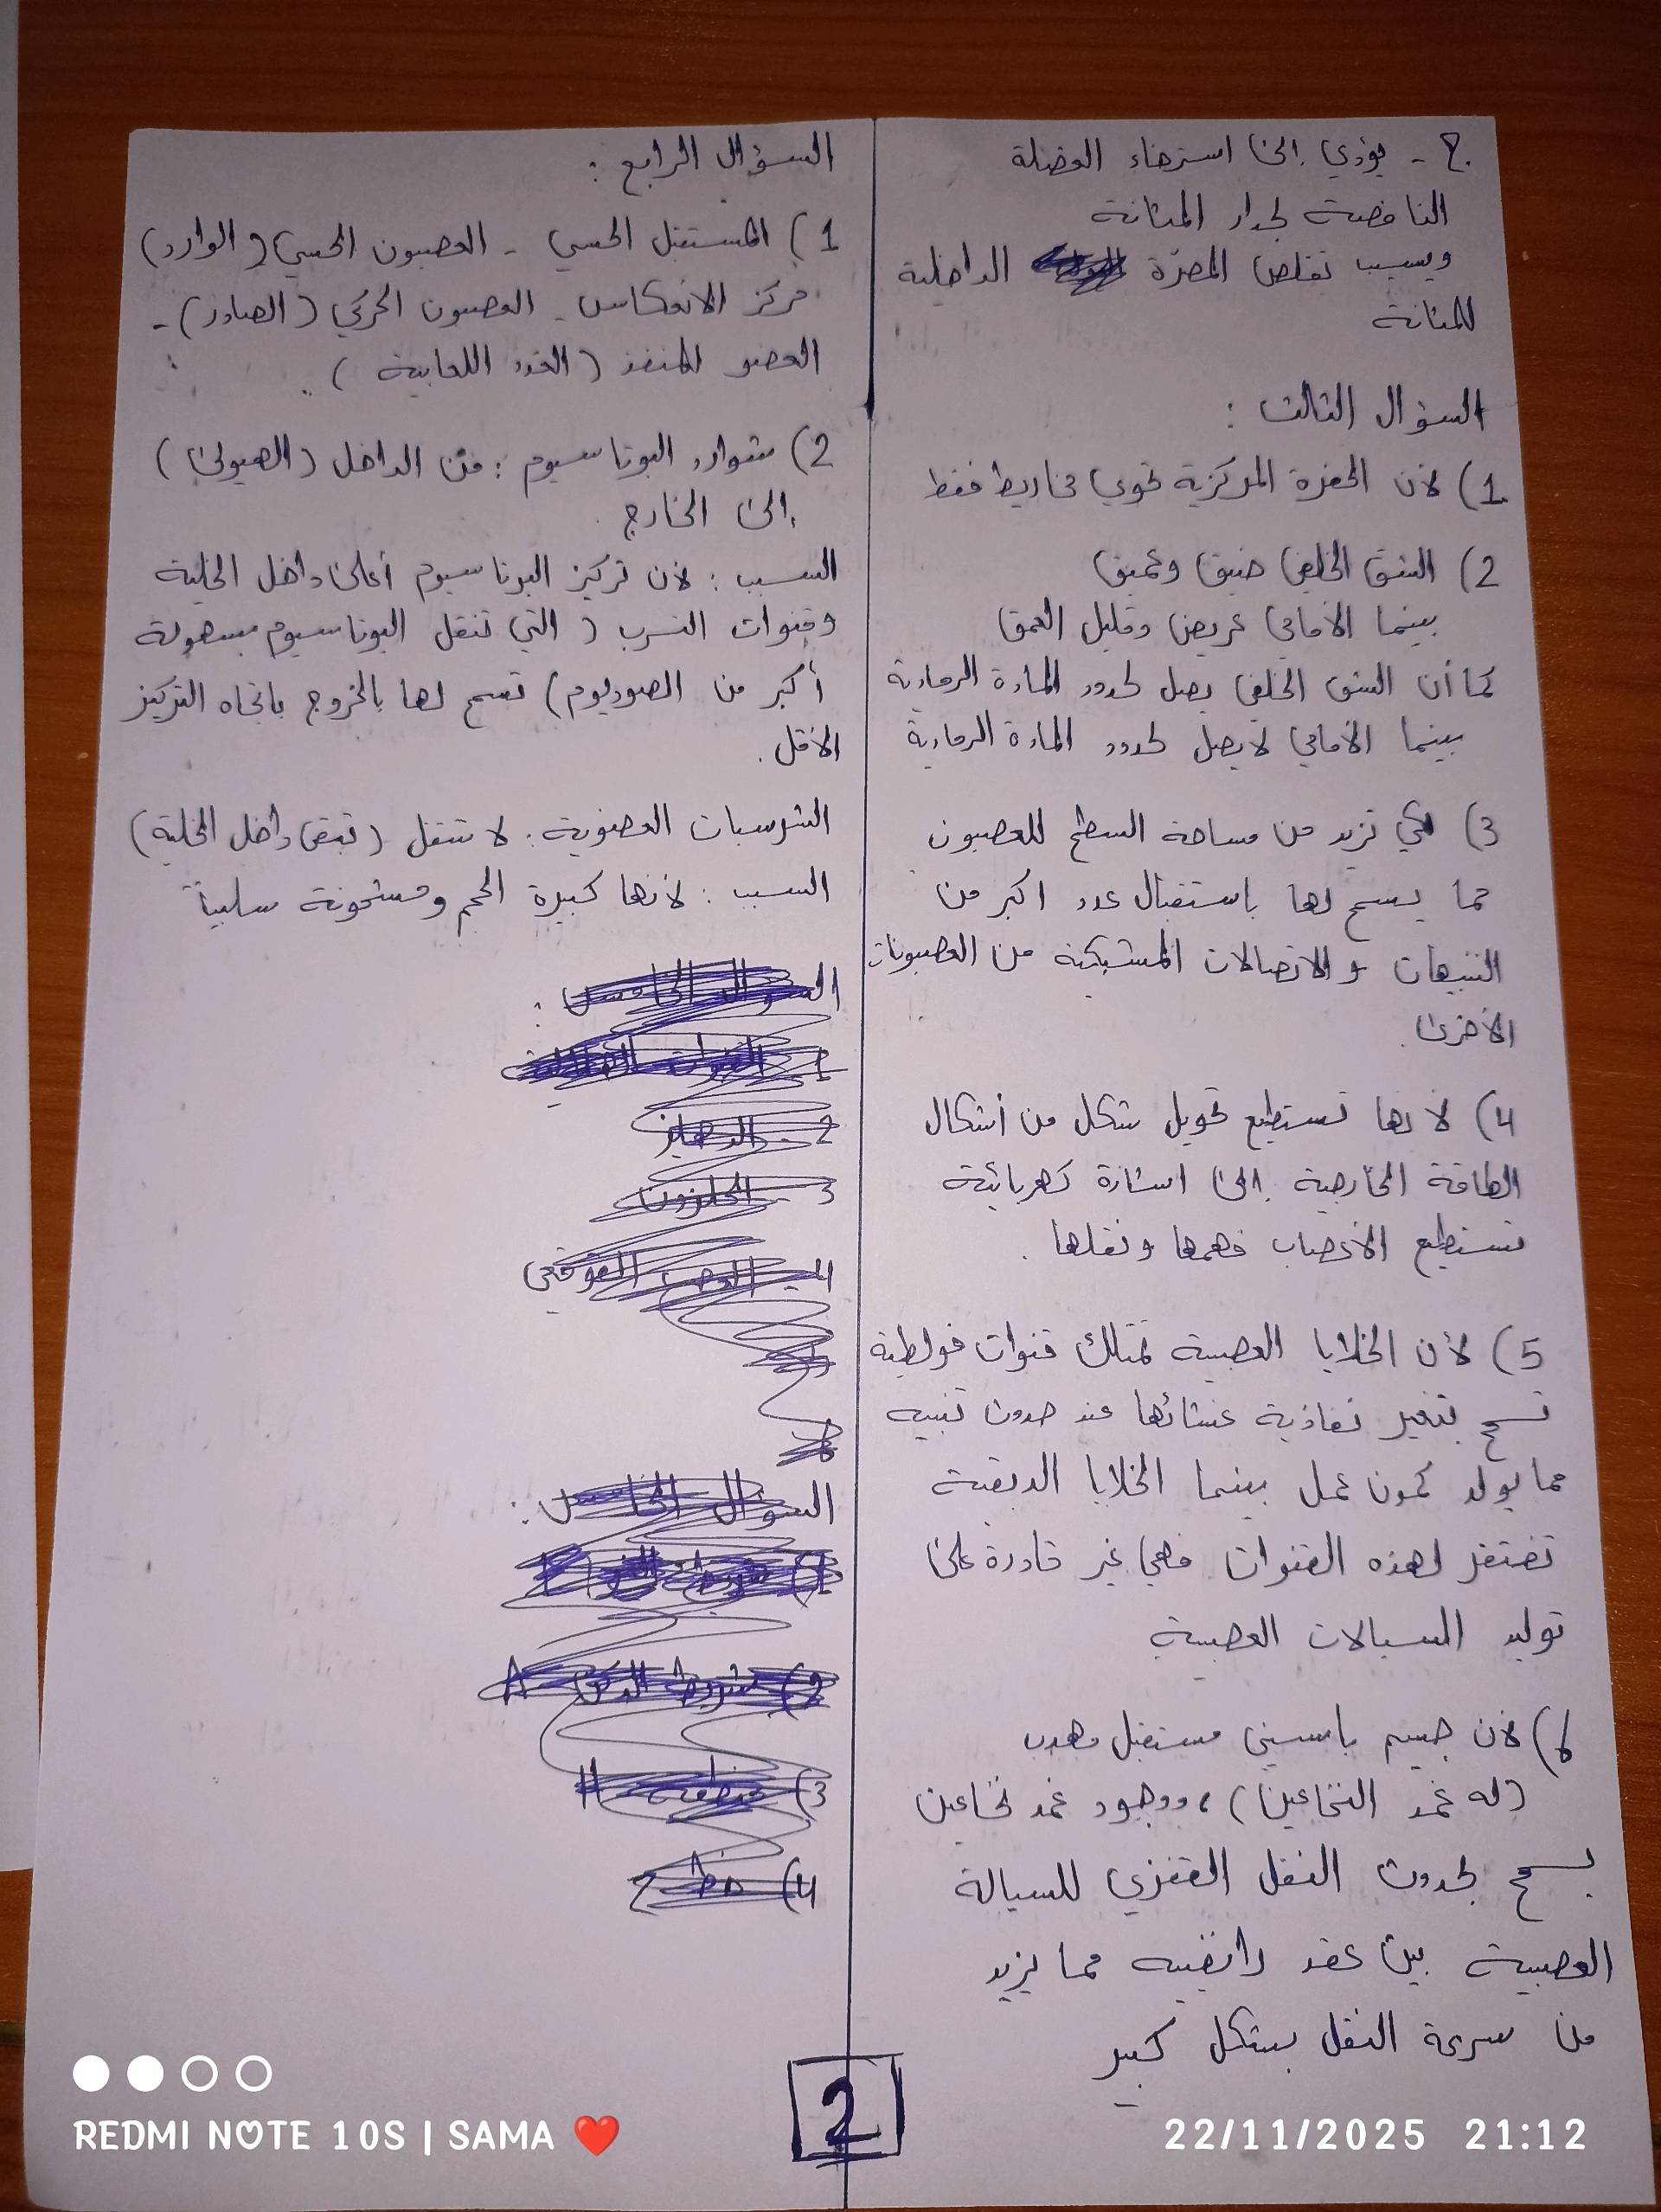 ج - يؤدي إلى استرخاء العضلة
الناقصة لجدار المثانة
ويسبب تقلص المصرّة الداخلية
للمثانة
السؤال الثالث :
1) لأن الحفرة المركزية تحوي مخاريط فقط
2) الشق الخلفي ضيق وعميق
بينما الأمامي عريض وقليل العمق
كما أن الشق الخلفي يصل لحدود المادة الرمادية
بينما الأمامي لا يصل لحدود المادة الرمادية
3) لكي تزيد من مساحة السطح للعصبون
مما يسمح لها باستقبال عدد اكبر من
التنبيهات والاتصالات المشبكية من العصبونات
الأخرى.
4) لأنها تستطيع تحويل شكل من أشكال
الطاقة الخارجية إلى اشارة كهربائية
تستطيع الأعصاب فهمها ونقلها .
5) لأن الخلايا العصبية تمتلك قنوات فولطية
تسمح بتغير نفاذية غشائها عند حدوث تنبيه
مما يولد كمون عمل بينما الخلايا الدبقية
تفتقر لهذه القنوات فهي غير قادرة على
توليد السيالات العصبية
6) لأن جسيم باسيني مستقبل مهدب
(له غمد النخاعين) ، ووجود غمد نخاعين
يسمح لحدوث النقل القفزي للسيالة
العصبية بين عقد رانفييه مما يزيد
من سرعة النقل بشكل كبير
السؤال الرابع :
1) المستقبل الحسي - العصبون الحسي (الوارد)
مركز الانعكاس - العصبون الحركي (الصادر) -
العضو المنفذ ( الغدد اللعابية ) .
2) شوارد البوتاسيوم : من الداخل ( الهيولى )
إلى الخارج .
السبب : لأن تركيز البوتاسيوم أعلى داخل الخلية
وقنوات التسرب ( التي تنقل البوتاسيوم بسهولة
أكبر من الصوديوم) تسمح لها بالخروج باتجاه التركيز
الأقل .
الشرسبات العضوية : لا تنتقل ( تبقى داخل الخلية)
السبب : لأنها كبيرة الحجم ومشحونة سلبياً
السؤال الخامس :
2 - الدهليز
3 - الحلزون
4 - العصب القوقعي
السؤال الخامس :
3) منطقة H
2
REDMI NOTE 10S | SAMA ❤️
22/11/2025 21:12